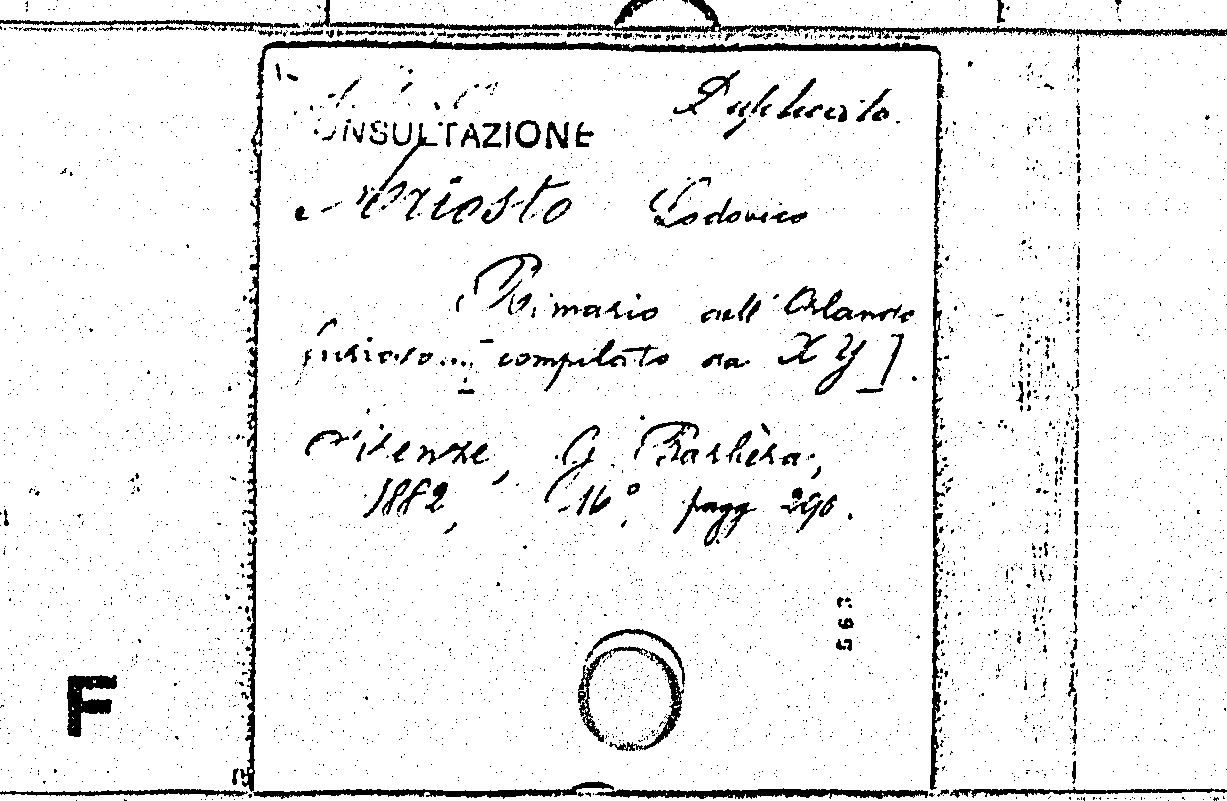 Duplicato.
CONSULTAZIONE
Ariosto Lodovico
Rimario dell'Orlando
furioso... [compilato da X Y].
Firenze, G. Barbèra,
1882, -16°. pagg 290.
F